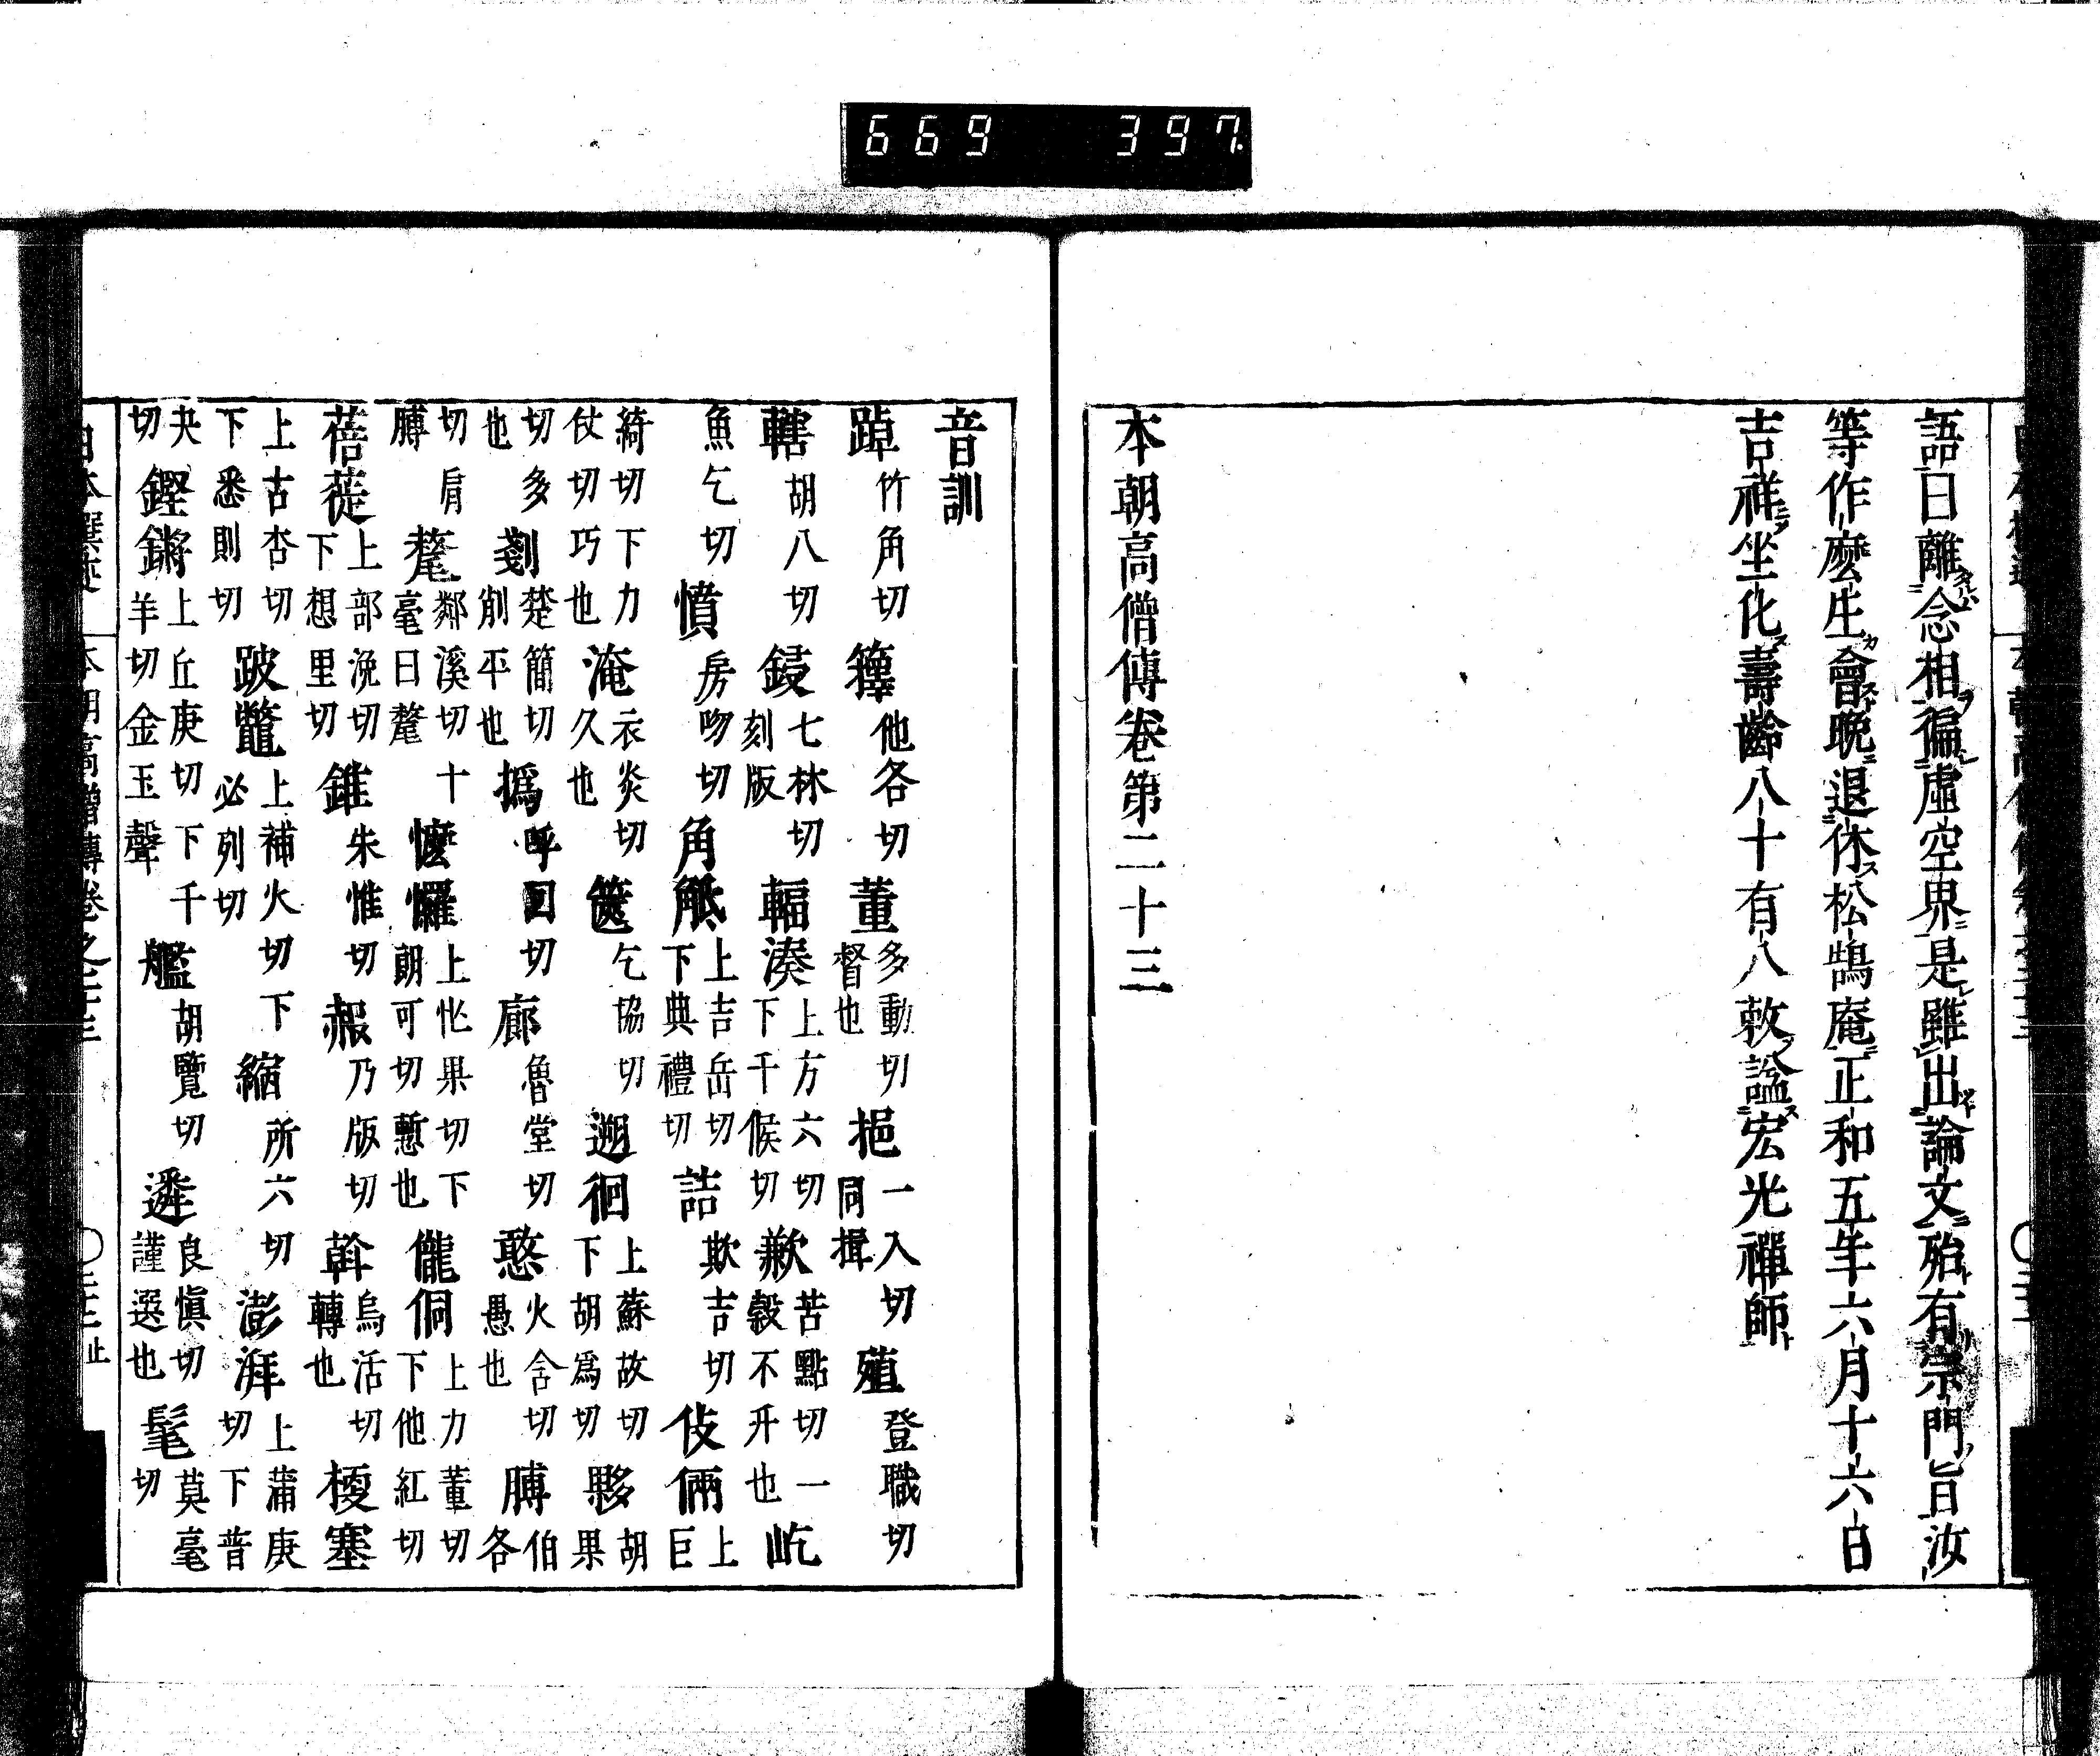 語曰離念相徧虛空界是雖出論文殆有宗門旨汝
等作麼生會晩退休松鵠庵正和五年六月十六日
吉祥坐化壽齡八十有八敕諡宏光禪師
本朝高僧傳卷第二十三
音訓
踔竹角切籜他各切董多動切督也挹一入切同揖殖登職切
轄胡八切鋟七林切刻版輻湊上方六切下千候切歉苦點切一穀不升也屹
魚乞切憤房吻切角觝上吉岳切下典禮切詰欺吉切伎倆上巨
綺切下力仗切巧也淹衣炎切久也篋乞協切遡徊上蘇故切下胡爲切夥胡果
切多也剗楚簡切削平也撝呼回切廊魯堂切憨火含切愚也膊伯各
切肩膊氂鄰溪切十毫曰氂懡㦬上忙果切下朗可切慙也儱侗上力董切下他紅切
蓓蓰上部浼切下想里切錐朱惟切赧乃版切斡烏活切轉也梗塞
上古杏切下悉則切跛鼈上補火切下必列切縮所六切澎湃上蒲庚切下普
夬切鏗鏘上丘庚切下千羊切金玉聲艦胡覽切遴良愼切謹選也髦莫毫切
本朝高僧傳卷之二十三